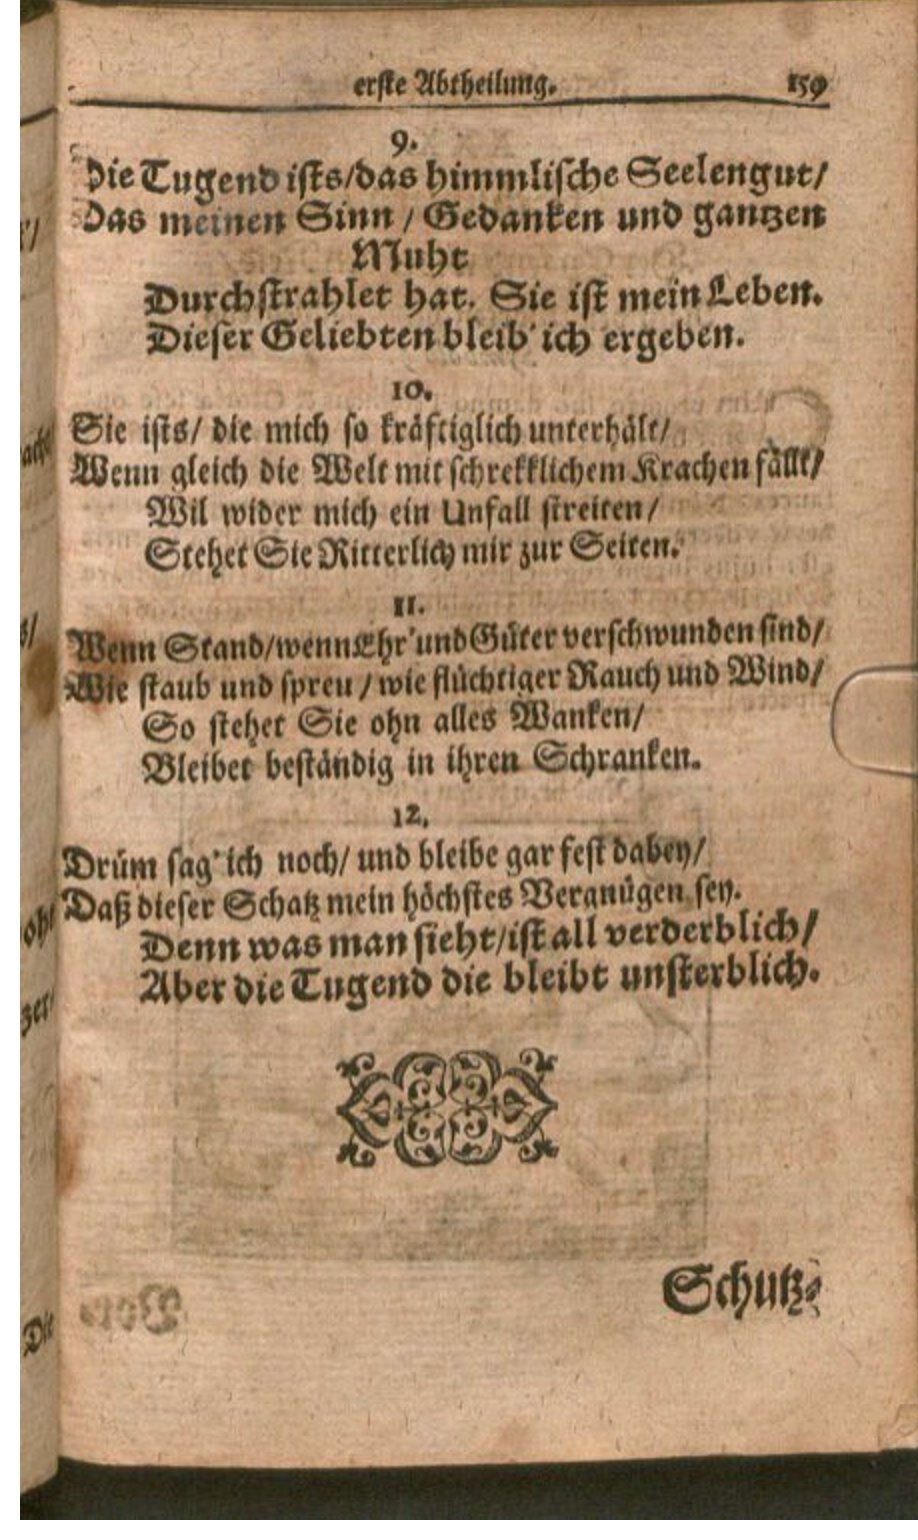 erste Abtheilung. 159
9.
Die Tugend ists/das himmlische Seelengut/
Das meinen Sinn / Gedanken und gantzen
Muht
Durchstrahlet hat. Sie ist mein Leben.
Dieser Geliebten bleib' ich ergeben.
10.
Sie ists/ die mich so kräftiglich unterhält/
Wenn gleich die Welt mit schrekklichem Krachen fällt/
Wil wider mich ein Unfall streiten/
Stehet Sie Ritterlich mir zur Seiten.
11.
Wenn Stand/wenn Ehr' und Güter verschwunden sind/
Wie staub und spreu / wie flüchtiger Rauch und Wind/
So stehet Sie ohn alles Wanken/
Bleibet beständig in ihren Schranken.
12.
Drüm sag' ich noch/ und bleibe gar fest dabey/
Daß dieser Schatz mein höchstes Vergnügen sey.
Denn was man sieht/ist all verderblich/
Aber die Tugend die bleibt unsterblich.
Schutz-
Die